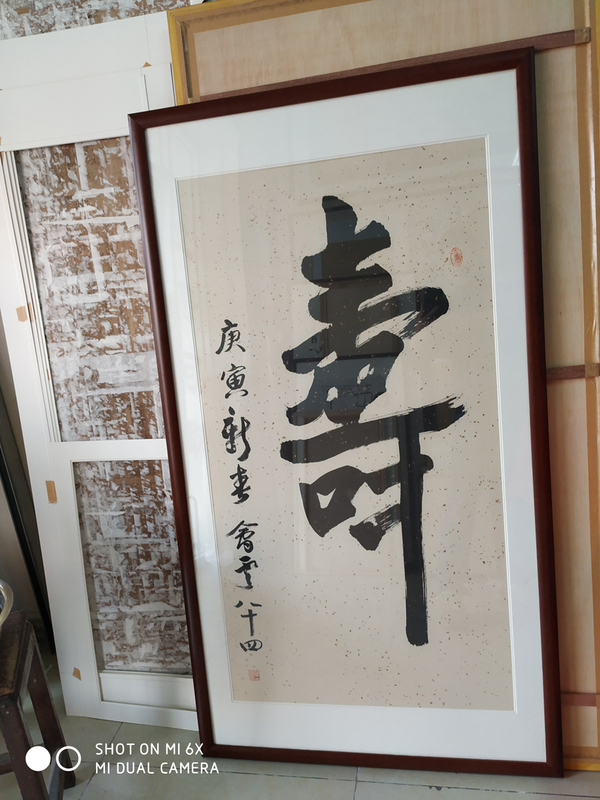 壽
庚寅新春會雲八十四
SHOT ON MI 6X
MI DUAL CAMERA